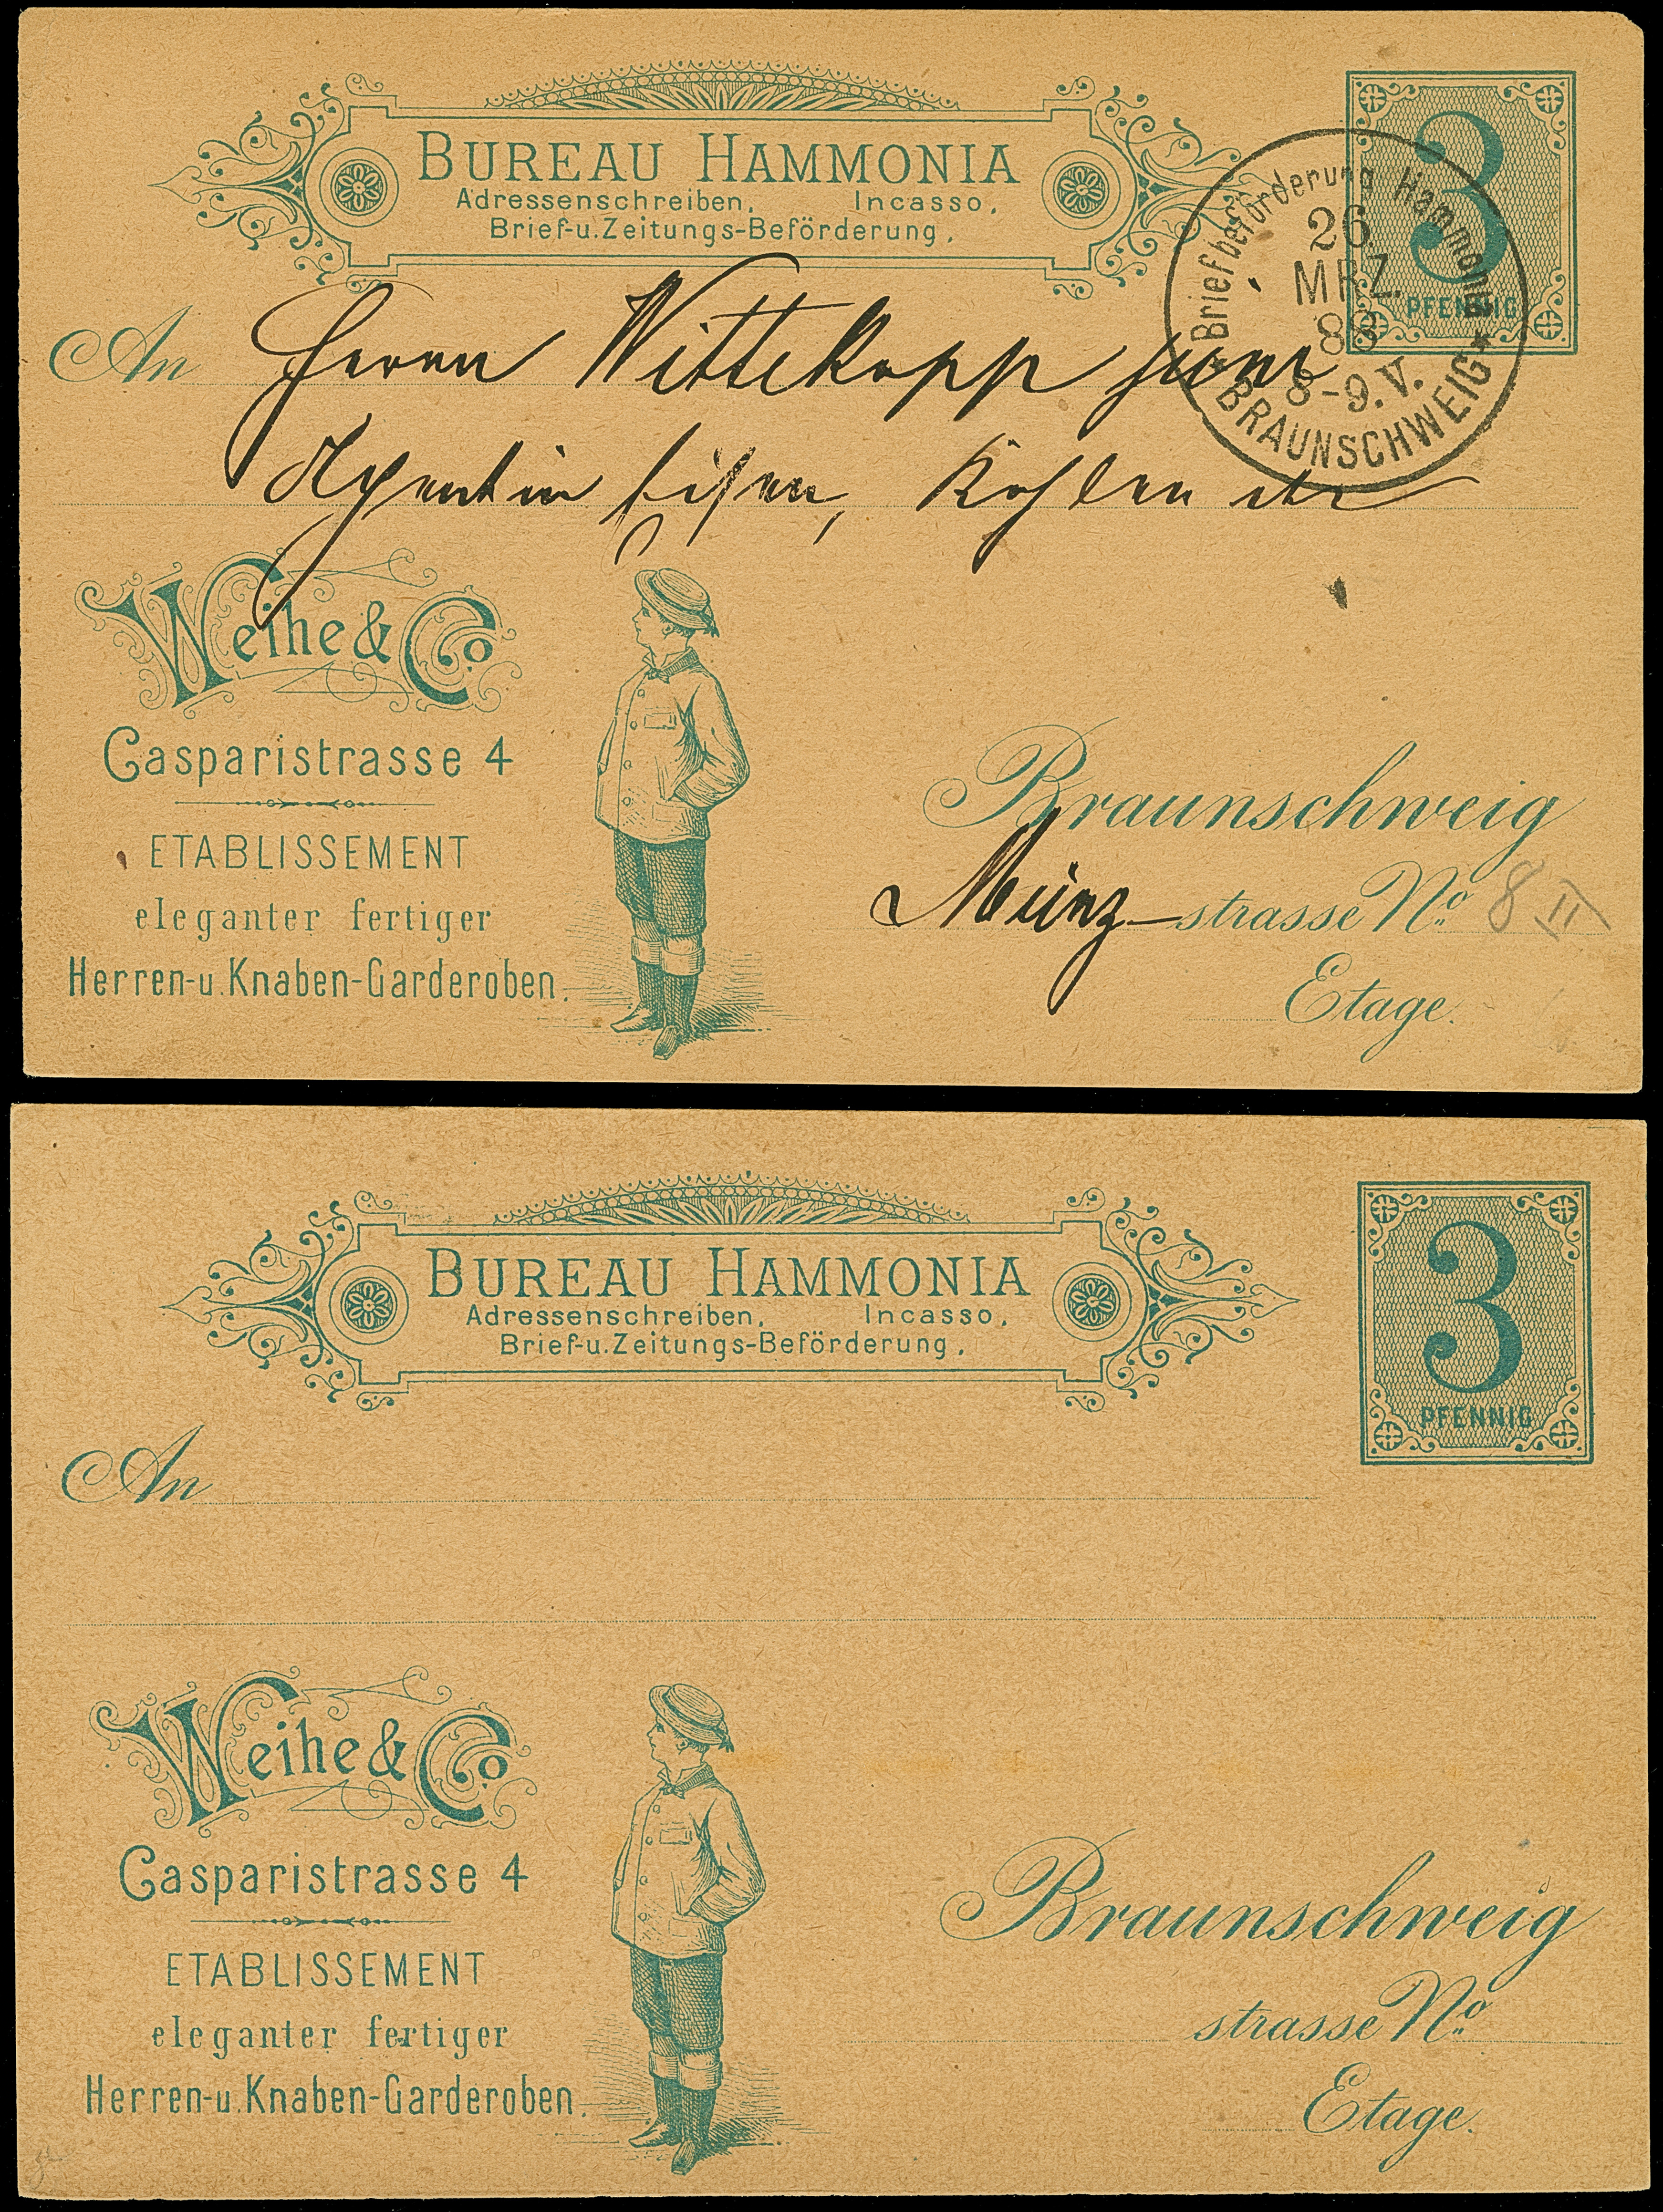 BUREAU HAMMONIA
Adressenschreiben, Incasso,
Brief-u.Zeitungs-Beförderung,
3
PFENNIG
Briefbeförderung Hammonia
26.
MRZ.
88
8-9.V.
* BRAUNSCHWEIG *
An Herrn Wittekopp jun
Agent in Eisen, Kohlen etc
Weihe & Co
Casparistrasse 4
ETABLISSEMENT
eleganter fertiger
Herren-u. Knaben-Garderoben.
Braunschweig
Münz-strasse No. 8 II
Etage.
BUREAU HAMMONIA
Adressenschreiben, Incasso,
Brief-u.Zeitungs-Beförderung,
3
PFENNIG
An
Weihe & Co
Casparistrasse 4
ETABLISSEMENT
eleganter fertiger
Herren-u. Knaben-Garderoben.
Braunschweig
strasse No.
Etage.